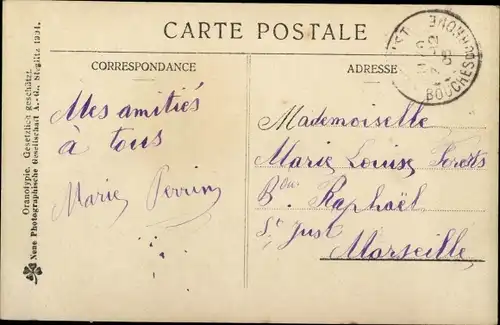 CARTE POSTALE
CORRESPONDANCE
ADRESSE
Mes amitiés
à tous
Marie Perrin
Mademoiselle
Marie Louise
Bᵈ Raphaël
Sᵗ Just
Marseille
BOUCHES DU RHONE
Oranotypie. Gesetzlich geschützt.
Neue Photographische Gesellschaft A.-G., Steglitz 1904.